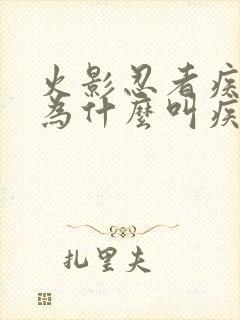 火影忍者疾
為什麼叫疾
扎里夫